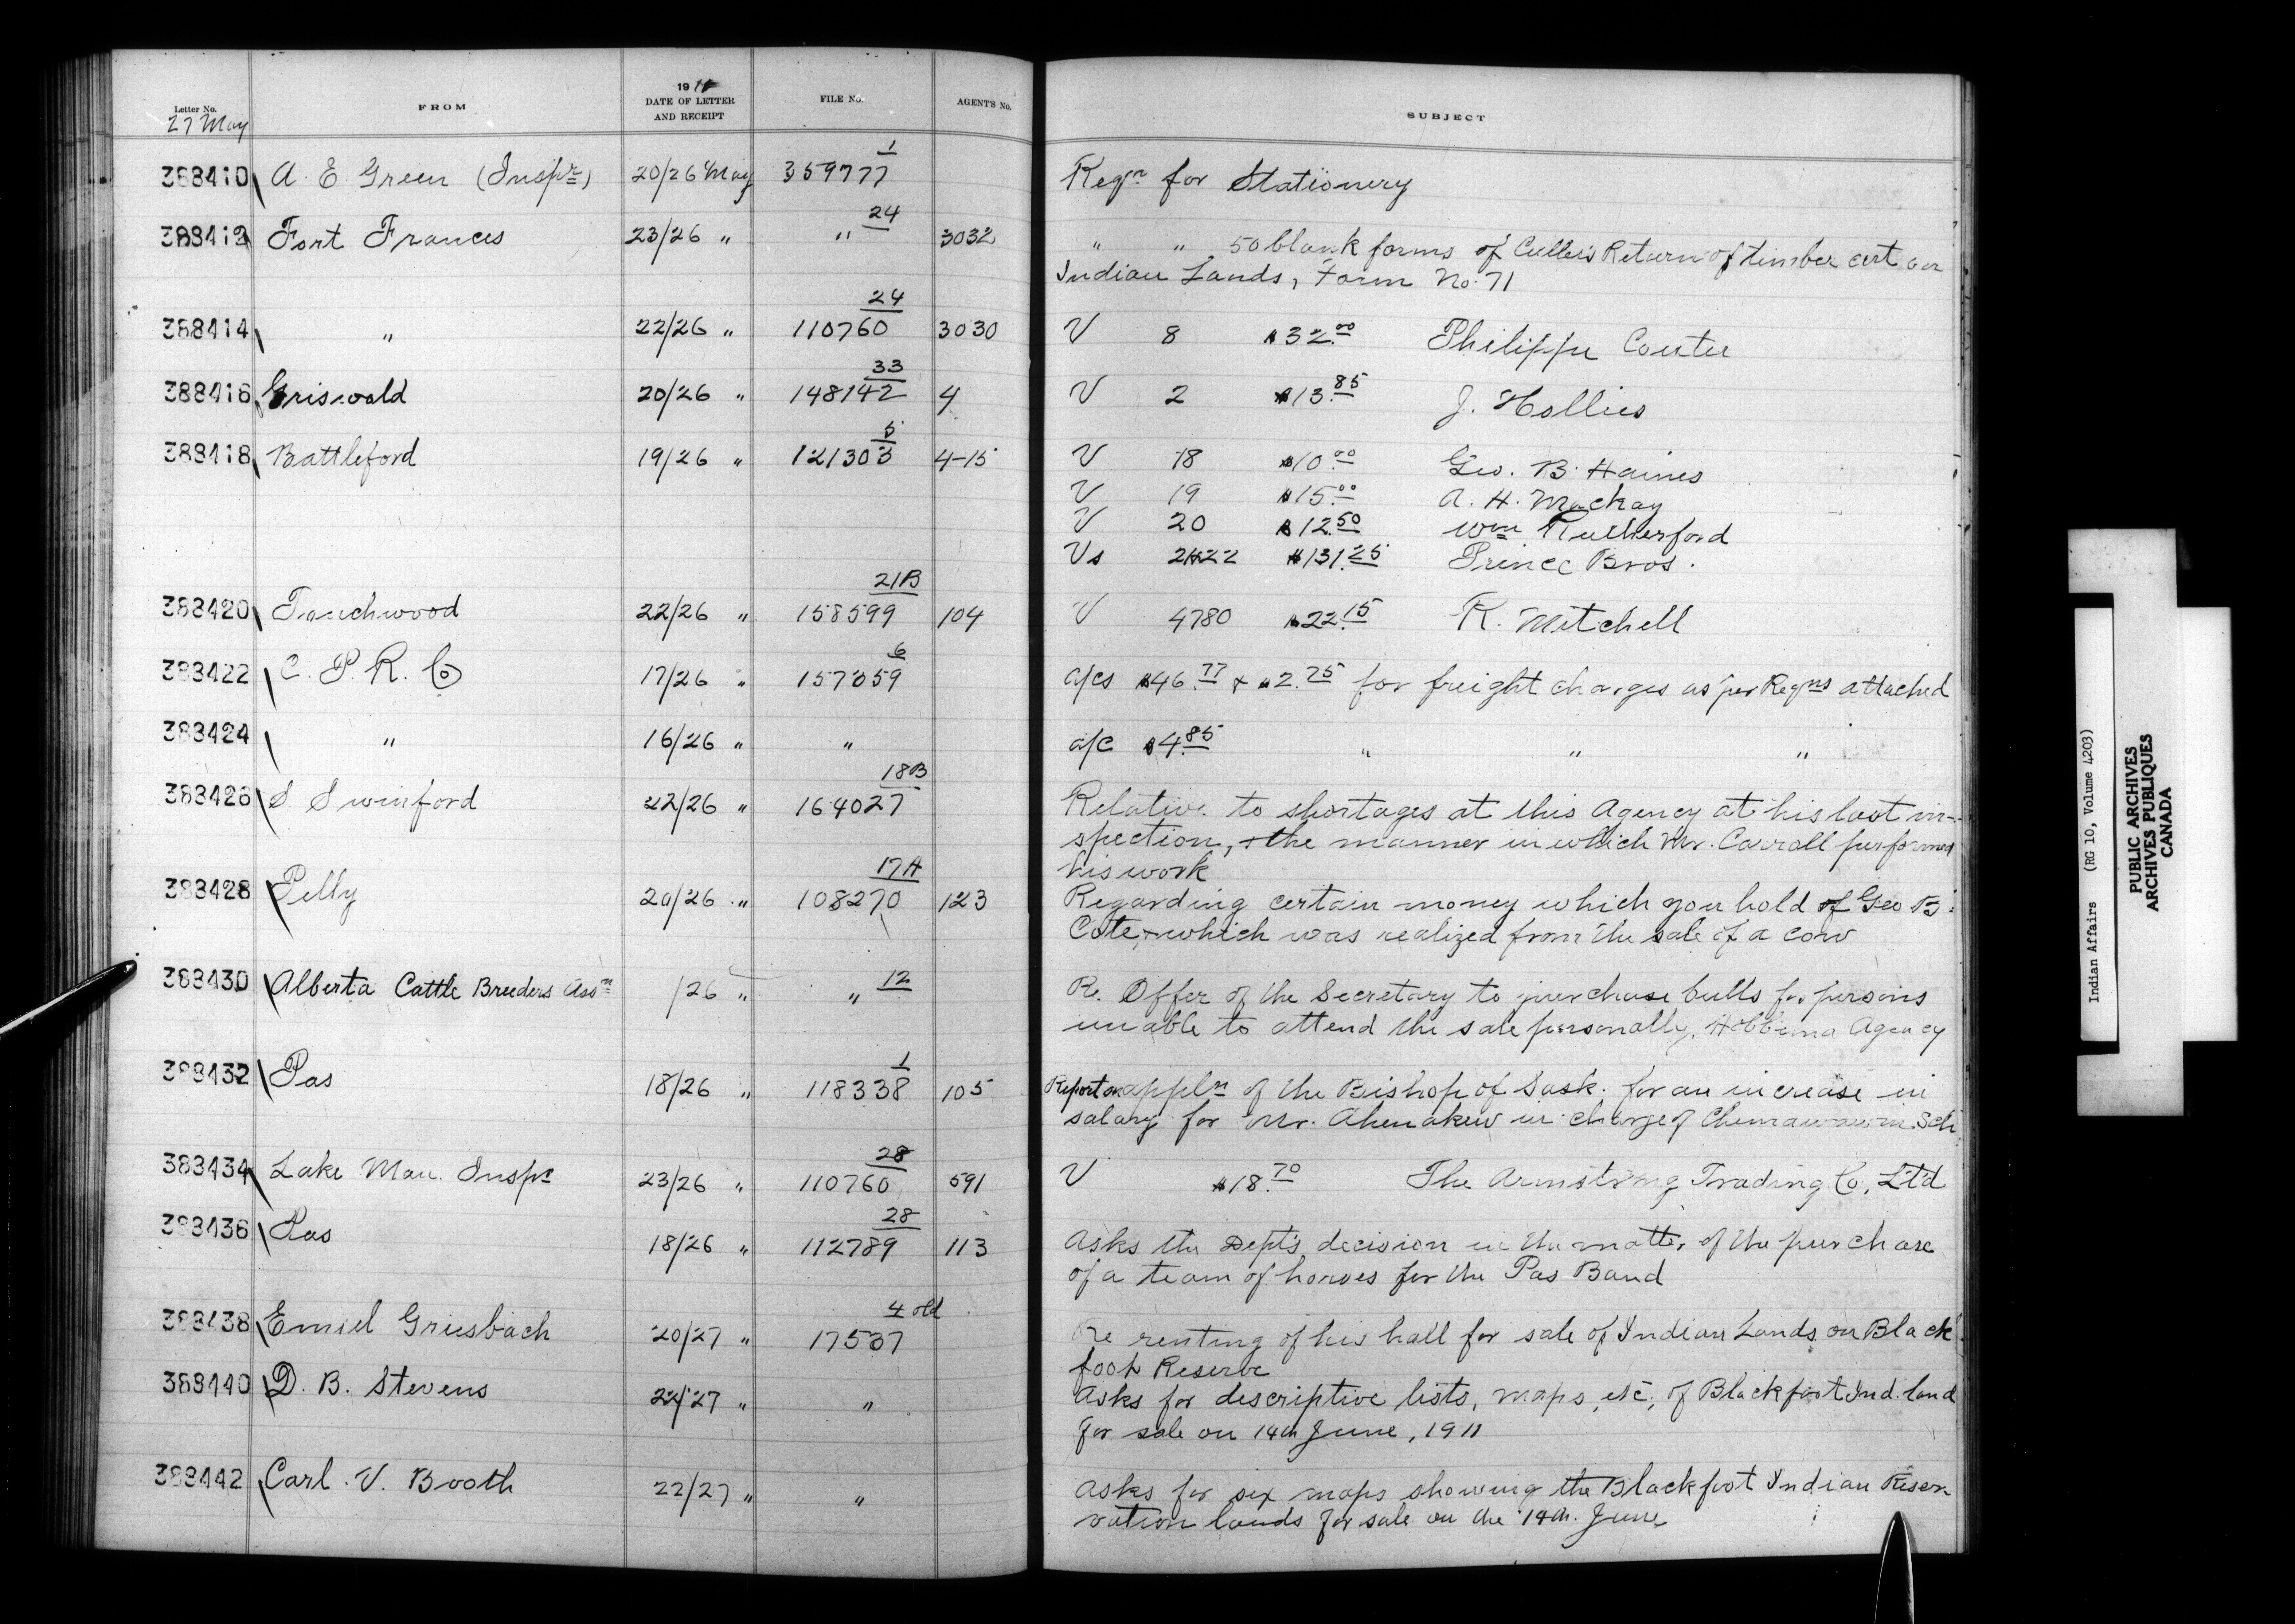 Letter No. FROM 1911 DATE OF LETTER AND RECEIPT FILE No. AGENT'S No. SUBJECT
27 May
388410 A. E. Green (Inspr) 20/26 May 359777 1 Reqn for Stationery
388412 Fort Frances 23/26 " " 24 3032 " " 50 blank forms of Culler's Return of timber cut on
Indian Lands, Form No. 71
388414 " 22/26 " 110760 24 3030 V 8 $32.00 Philippe Coutu
388416 Griswold 20/26 " 148142 33 4 V 2 $13.85 J. Hollies
388418 Battleford 19/26 " 121303 5 4-15 V 18 $10.00 Geo. B. Haines
V 19 $15.00 A. H. Mackay
V 20 $12.50 Wm Rutherford
Vs 21&22 $131.25 Prince Bros.
388420 Touchwood 22/26 " 158599 21B 104 V 4780 $22.15 R. Mitchell
388422 C. P. R. Co 17/26 " 157359 6 a/cs $46.77 & $2.75 for freight charges as per Reqns attached
388424 " 16/26 " " a/c $4.85 " " "
388426 S. Swinford 22/26 " 164027 18B Relative to shortages at this Agency at his last in-
spection, & the manner in which Mr. Carroll performed
his work
388428 Pelly 20/26 " 108270 17A 123 Regarding certain money which you hold of Geo B.
Cote & which was realized from the sale of a cow
388430 Alberta Cattle Breeders Assn /26 " " 12 Re. Offer of the Secretary to purchase bulls for persons
unable to attend the sale personally, Hobbema Agency
388432 Pas 18/26 " 118338 1 105 Report on appln of the Bishop of Sask. for an increase in
salary for Mr. Ahenakew in charge of Chemawawin Sch
388434 Lake Man. Inspr 23/26 " 110760 28 591 V $18.70 The Armstrong Trading Co, Lt'd
388436 Pas 18/26 " 112789 28 113 Asks the Dept's decision in the matter of the purchase
of a team of horses for the Pas Band
388438 Emiel Griesbach 20/27 " 17537 4 old Re renting of his hall for sale of Indian Lands on Black
foot Reserve
388440 D. B. Stevens 22/27 " " Asks for descriptive lists, maps, etc, of Blackfoot Ind. land
for sale on 14th June, 1911
388442 Carl. V. Booth 22/27 " " Asks for six maps showing the Blackfoot Indian Reser-
vation lands for sale on the 14th. June
Indian Affairs (RG 10, Volume 4203)
PUBLIC ARCHIVES
ARCHIVES PUBLIQUES
CANADA